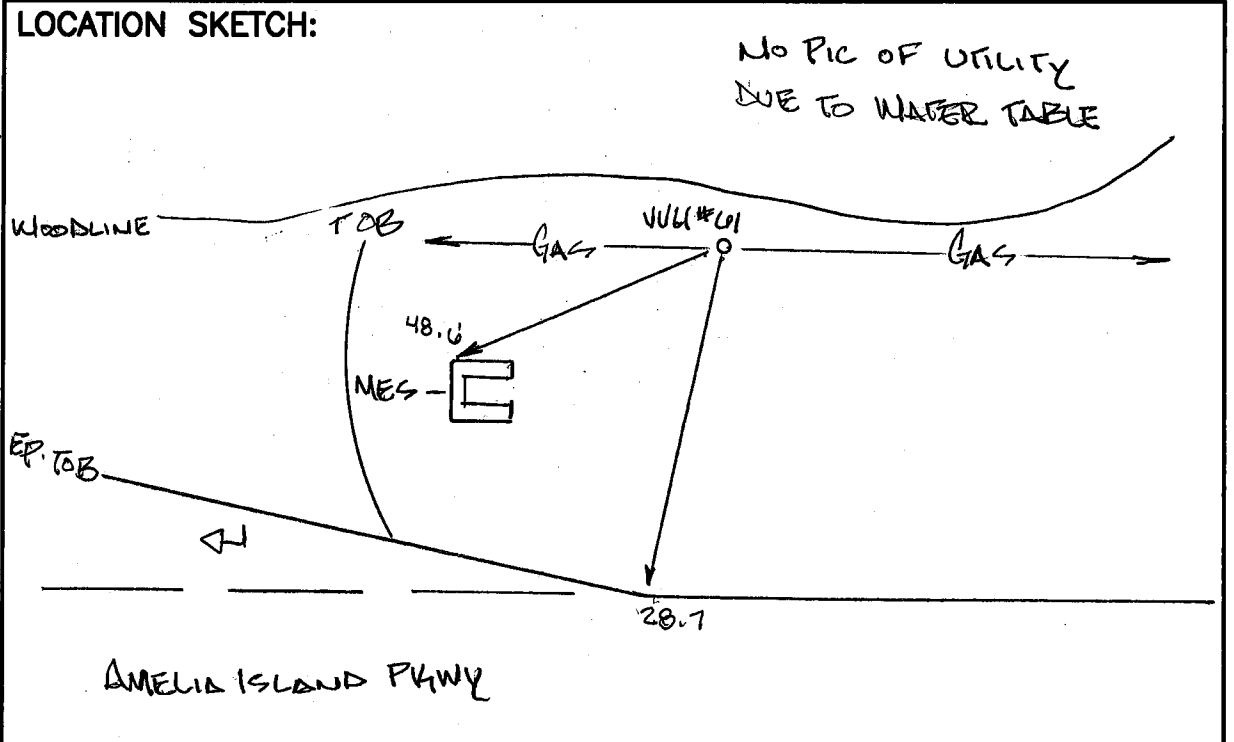 LOCATION SKETCH:
NO PIC OF UTILITY
DUE TO WATER TABLE
WOODLINE
TOB
GAS
VVH #61
GAS
48.6
MES
EP. TOB
28.7
AMELIA ISLAND PKWY